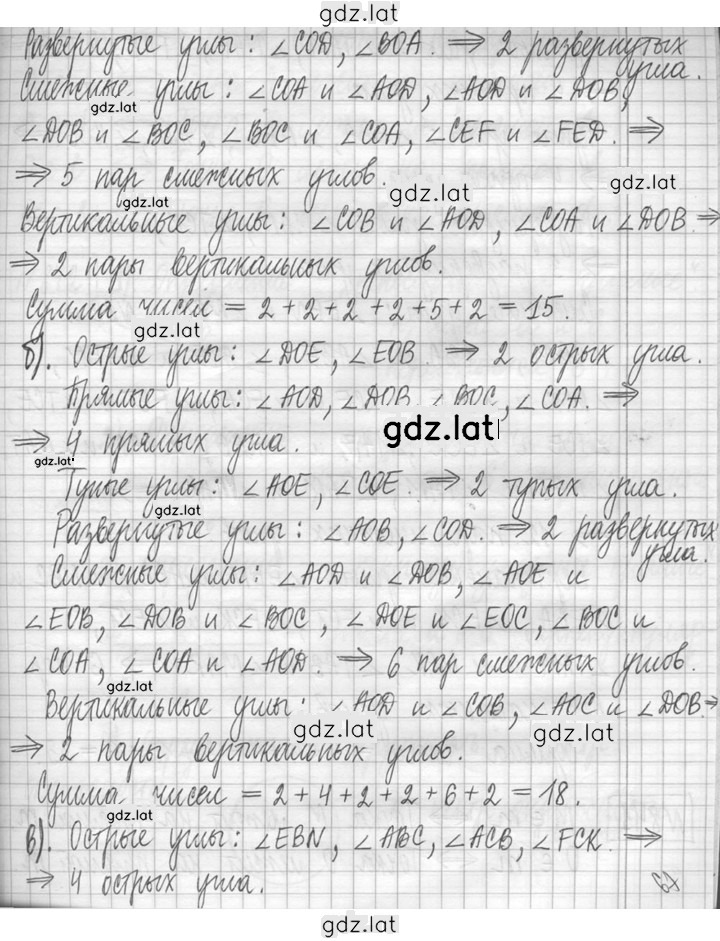 gdz.lat
Развернутые углы: ∠COD, ∠BOA. ⇒ 2 развернутых
угла.
Смежные углы: ∠COA и ∠AOD, ∠AOD и ∠DOB,
gdz.lat
∠DOB и ∠BOC, ∠BOC и ∠COA, ∠CEF и ∠FED. ⇒
⇒ 5 пар смежных углов.
gdz.lat gdz.lat gdz.lat
Вертикальные углы: ∠COB и ∠AOD, ∠COA и ∠DOB ⇒
⇒ 2 пары вертикальных углов.
Сумма чисел = 2 + 2 + 2 + 2 + 5 + 2 = 15.
gdz.lat
б). Острые углы: ∠DOE, ∠EOB. ⇒ 2 острых угла.
Прямые углы: ∠AOD, ∠DOB, ∠BOC, ∠COA. ⇒
gdz.lat
⇒ 4 прямых угла.
gdz.lat
Тупые углы: ∠AOE, ∠COE. ⇒ 2 тупых угла.
gdz.lat
Развернутые углы: ∠AOB, ∠COD. ⇒ 2 развернутых
угла.
Смежные углы: ∠AOD и ∠DOB, ∠AOE и
∠EOB, ∠DOB и ∠BOC, ∠DOE и ∠EOC, ∠BOC и
∠COA, ∠COA и ∠AOD. ⇒ 6 пар смежных углов.
gdz.lat
Вертикальные углы: ∠AOD и ∠COB, ∠AOC и ∠DOB ⇒
gdz.lat gdz.lat
⇒ 2 пары вертикальных углов.
Сумма чисел = 2 + 4 + 2 + 2 + 6 + 2 = 18.
gdz.lat
в). Острые углы: ∠EBN, ∠ABC, ∠ACB, ∠FCK. ⇒
⇒ 4 острых угла.
67
gdz.lat